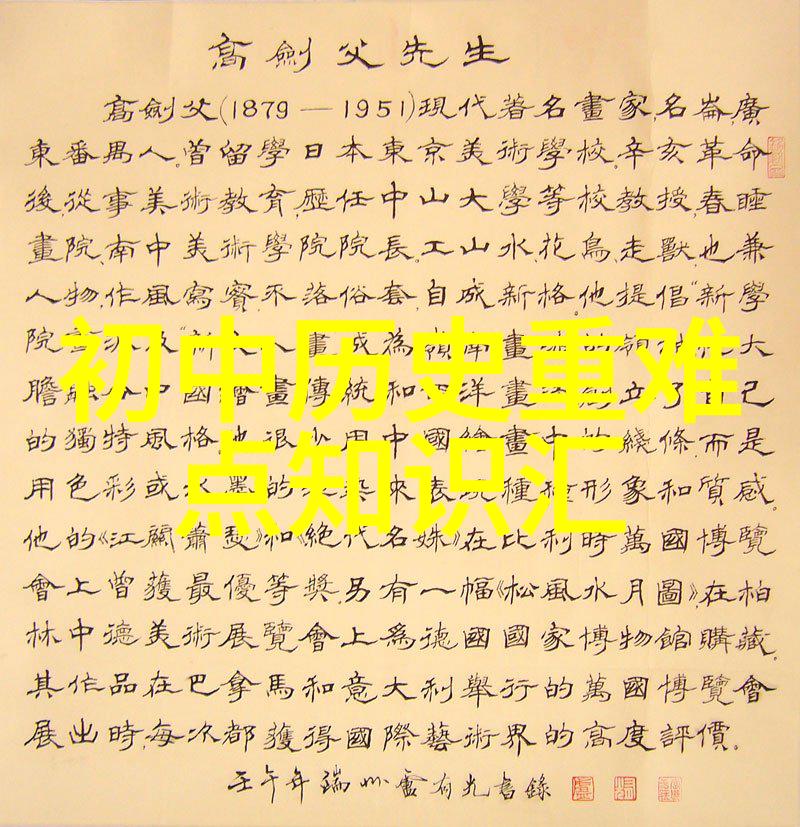 高劍父先生
高劍父(1879—1951)現代著名畫家,名崙,廣
東番禺人。曾留學日本東京美術學校。辛亥革命
後,從事美術教育,歷任中山大學等校教授,春睡
畫院、南中美術學院院長。工山水、花鳥、走獸,也兼
人物,作風寫實,不落俗套,自成新格。他提倡“新學
院
大
膽
己
的獨特風格,他很少用中國繪畫中的綫條,而是
用色彩或水墨的
來表現種種形象和質感。
他的《江關蕭瑟》和《絕代名姝》在比利時萬國博覽
會上曾獲最優等獎,另有一幅《松風水月圖》,在柏
林中德美術展覽會上為德國國家博物館購藏。
其作品在巴拿馬和意大利舉行的萬國博覽會
展出時,每次都獲得國際藝術界的高度評價。
壬午年端州盧有光書錄
初中历史重难
点知识汇